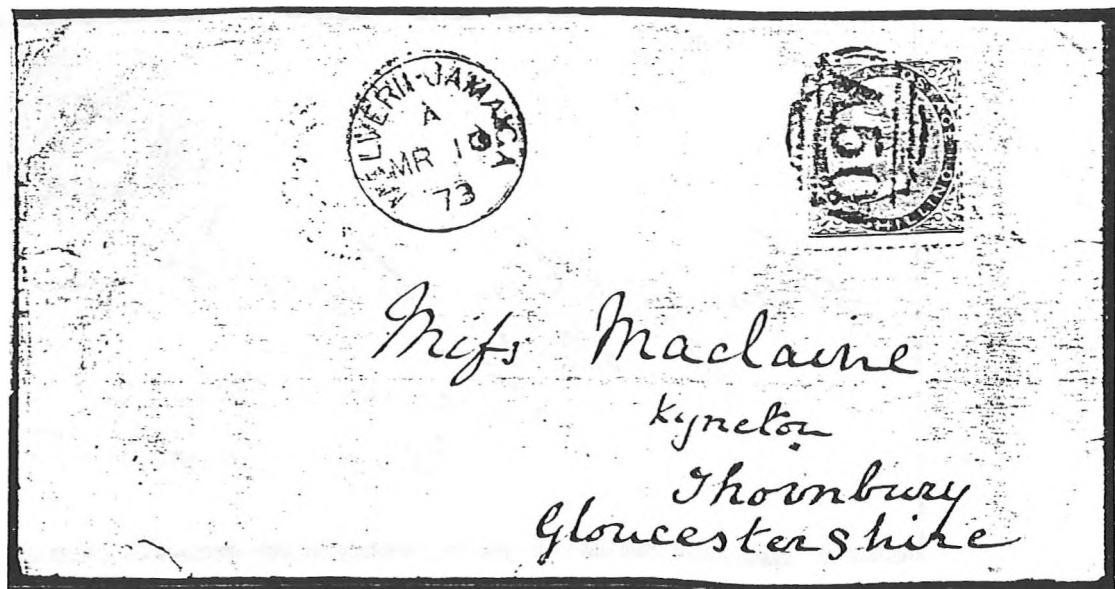 MALVERN-JAMAICA
A
MR 10
73
A50
SHILLING
Mifs Maclaine
Kyneton
Thornbury
Gloucestershire